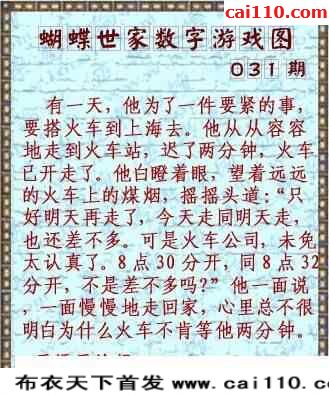 cai110.com
蝴蝶世家数字游戏图
031期
有一天，他为了一件要紧的事，
要搭火车到上海去。他从从容容
地走到火车站，迟了两分钟，火车
已开走了。他白瞪着眼，望着远远
的火车上的煤烟，摇摇头道：“只
好明天再走了，今天走同明天走，
也还差不多。可是火车公司，未免
太认真了。8点30分开，同8点32
分开，不是差不多吗？”他一面说，
一面慢慢地走回家，心里总不很
明白为什么火车不肯等他两分钟。
布衣天下首发 www.cai110.com